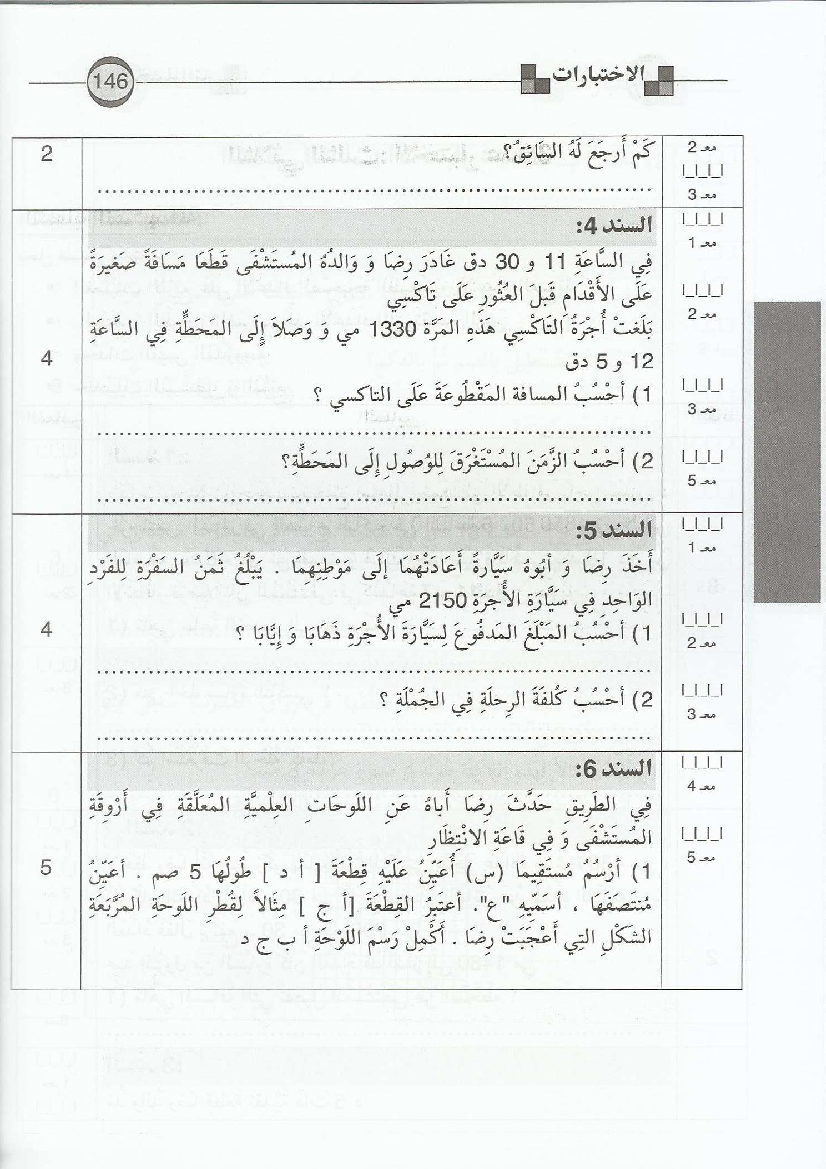 الاختبارات
146
كَمْ أَرجَعَ لَهُ السَّائِقُ؟
2
مع2
مع3
السند 4:
فِي السَّاعَةِ 11 و 30 دق غَادَرَ رِضَا وَ وَالدُهُ المُسْتَشْفَى قَطَعَا مَسَافَةً صَغِيرَةً
عَلَى الأَقْدَامِ قَبْلَ العُثُورِ عَلَى تَاكْسِي
بَلَغَتْ أُجْرَةُ التَاكْسِي هَذِهِ المَرَّةَ 1330 مي وَ وَصَلاَ إِلَى المَحَطَّةِ فِي السَّاعَةِ
12 و 5 دق
1) أَحْسُبُ المسافة المَقْطُوعَةَ عَلَى التاكسي ؟
2) أَحْسُبُ الزَّمَنَ المُسْتَغْرَقَ لِلوُصُولِ إِلَى المَحَطَّةِ؟
4
مع1
مع2
مع3
مع5
السند 5:
أَخَذَ رِضَا وَ أَبُوهُ سَيَّارَةً أَعَادَتْهُمَا إِلَى مَوْطِنِهِمَا . يَبْلُغُ ثَمَنُ السَفْرَةِ لِلفَرْدِ
الوَاحِدِ فِي سَيَّارَةِ الأُجْرَةِ 2150 مي
1) أَحْسُبُ المَبْلَغَ المَدْفُوعَ لِسَيَّارَةِ الأُجْرَةِ ذَهَابَا وَ إِيَّابَا ؟
2) أَحْسُبُ كُلفَةَ الرِحلَةِ فِي الجُمْلَةِ ؟
4
مع1
مع2
مع3
السند 6:
فِي الطَرِيقِ حَدَّثَ رِضَا أَبَاهُ عَنِ اللَوحَاتِ العِلْمِيَّةِ المُعَلَّقَةِ فِي أَرْوِقَةِ
المُسْتَشْفَى وَ فِي قَاعَةِ الانْتِظَارِ
1) أَرْسُمُ مُسْتَقِيمًا (س) أُعَيِّنُ عَلَيْهِ قِطْعَةَ [ أ د ] طُولُهَا 5 صم . أُعَيِّنُ
مُنْتَصَفَهَا ، أُسَمِّيهِ "ع". أَعتَبِرُ القِطْعَةَ [أ ج ] مِثَالاً لِقُطْرِ اللَوْحَةِ المُرَبَّعَةِ
الشَكْلِ التِي أَعْجَبَتْ رِضَا . أُكْمِلُ رَسْمَ اللَوْحَةِ أ ب ج د
5
مع4
مع5